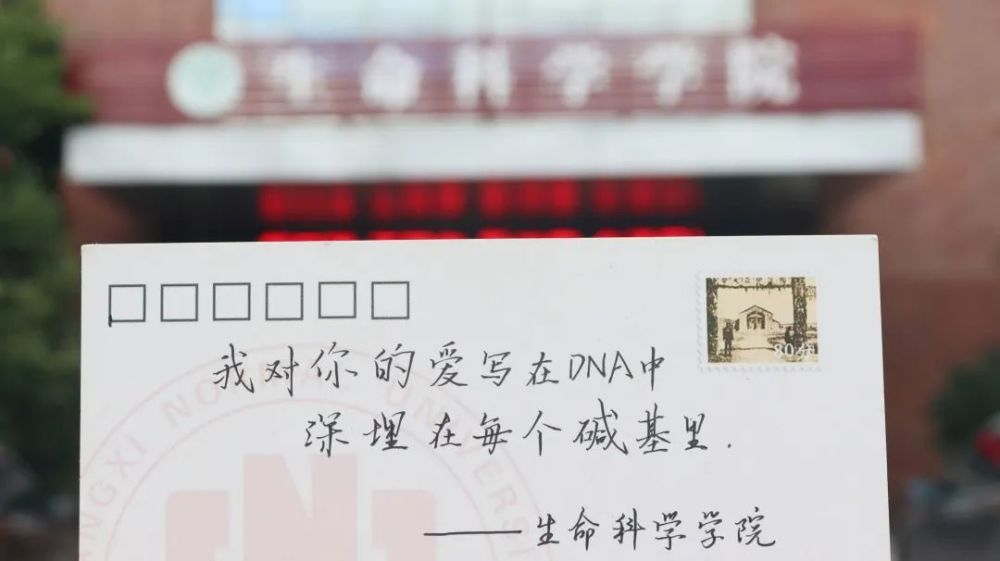 生命科学学院
80分
我对你的爱写在DNA中
深埋在每个碱基里.
——生命科学学院
NGXI NORMAL UNIVERSI